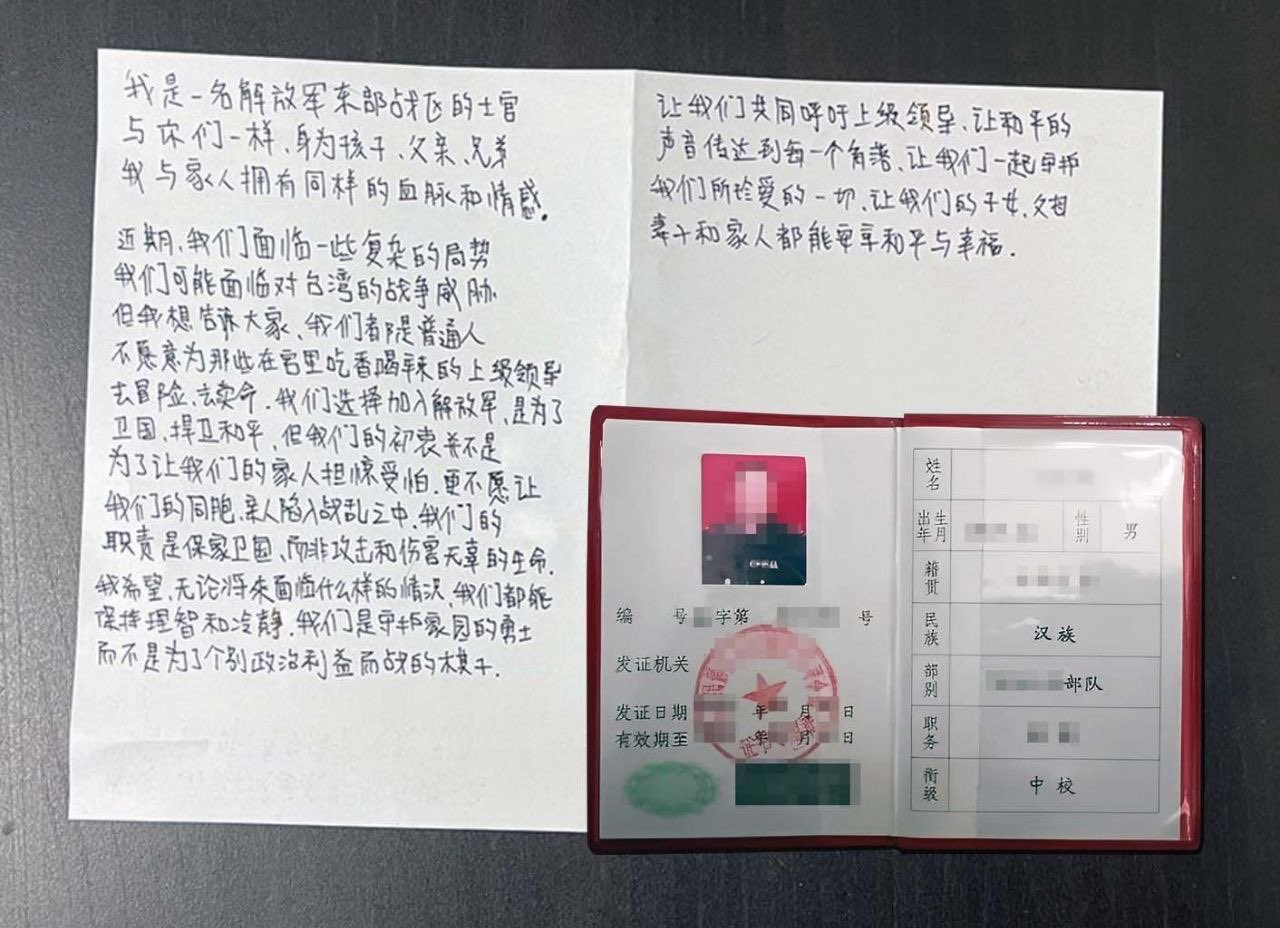 我是一名解放军东部战区的士官
与你们一样、身为孩子、父亲、兄弟
我与家人拥有同样的血脉和情感.
近期、我们面临一些复杂的局势
我们可能面临对台湾的战争威胁.
但我想告诉大家、我们都是普通人
不愿意为那些在宫里吃香喝辣的上级领导
去冒险、去卖命.我们选择加入解放军、是为了
卫国、捍卫和平、但我们的初衷并不是
为了让我们的家人担惊受怕.更不愿让
我们的同胞、亲人陷入战乱之中.我们的
职责是保家卫国、而非攻击和伤害无辜的生命.
我希望、无论将来面临什么样的情况、我们都能
保持理智和冷静.我们是守护家园的勇士
而不是为了个别政治利益而战的棋子.
让我们共同呼吁上级领导、让和平的
声音传达到每一个角落、让我们一起守护
我们所珍爱的一切、让我们的子女、父母
妻子和家人都能享有和平与幸福.
编 号 字第 号
发证机关
发证日期 年 月 日
有效期至 年 月 日
姓名
出生年月 性别 男
籍贯
民族 汉族
部别 部队
职务
衔级 中校